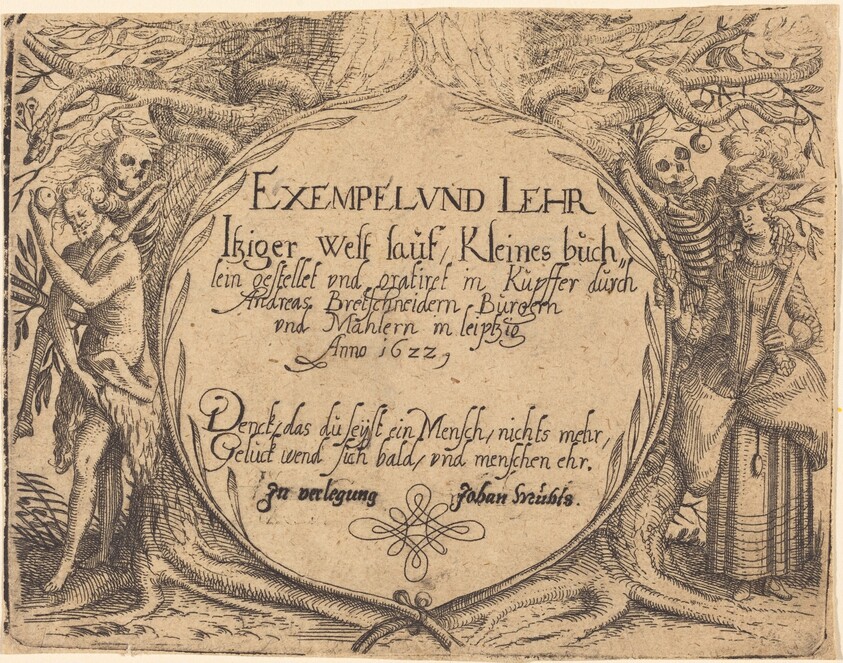 EXEMPEL VND LEHR
Itziger Welt lauf, Kleines buch„
lein gestellet vnd gratiret in Kupffer durch
Andreas Bretschneidern Burgern
vnd Mahlern in leiptzig
Anno 1622,
Denck, das du seyst ein Mensch, nichts mehr,
Gelück wend sich bald, vnd menschen ehr.
In verlegung Johan